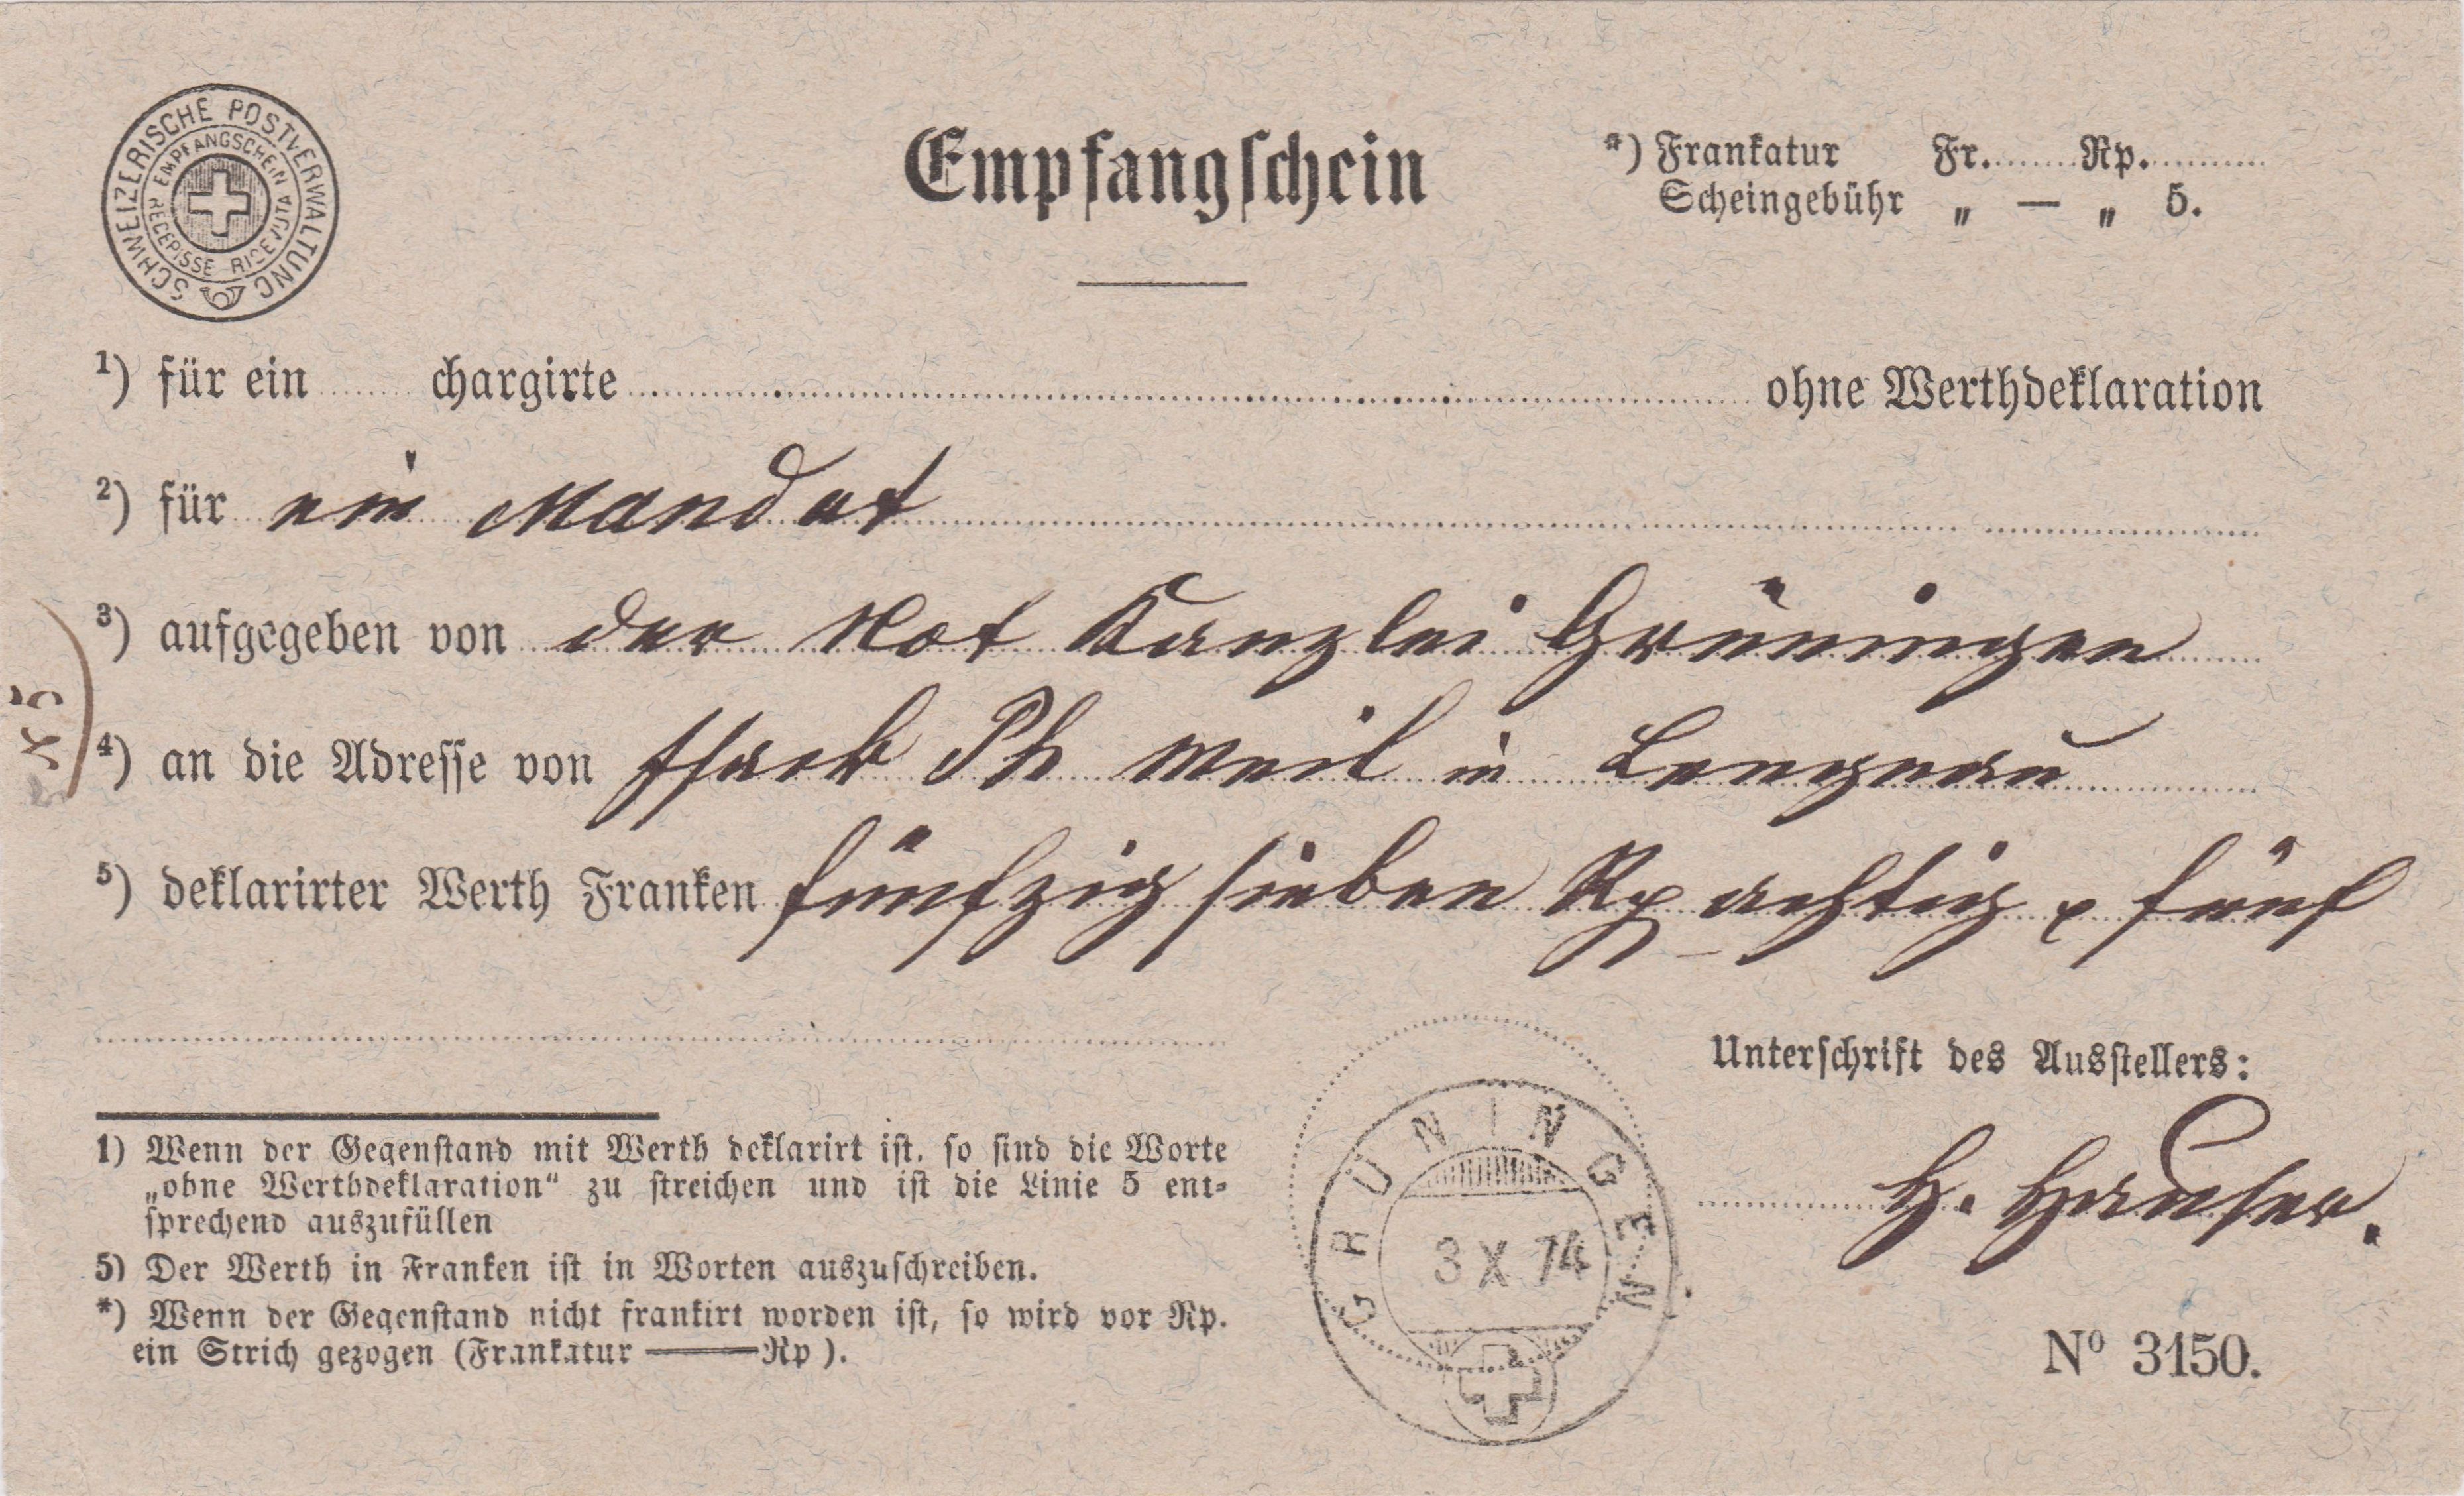 SCHWEIZERISCHE POSTVERWALTUNG
EMPFANGSCHEIN RICEVUTA RECEPISSE
Empfangschein
*) Frankatur Fr. ........ Rp. ........
Scheingebühr „ — „ 5.
1) für ein ...... chargirte ........ ohne Werthdeklaration
2) für ein Mandat
3) aufgegeben von der Not Kanzlei Grüningen
4) an die Adresse von Ph Weil in Lengnau
5) deklarirter Werth Franken fünfzig sieben Rp achtzig & fünf
Unterschrift des Ausstellers:
H. Hauser.
1) Wenn der Gegenstand mit Werth deklarirt ist, so sind die Worte
„ohne Werthdeklaration“ zu streichen und ist die Linie 5 ent-
sprechend auszufüllen
5) Der Werth in Franken ist in Worten auszuschreiben.
*) Wenn der Gegenstand nicht frankirt worden ist, so wird vor Rp.
ein Strich gezogen (Frankatur ——— Rp ).
GRÜNINGEN
3 X 74
No 3150.